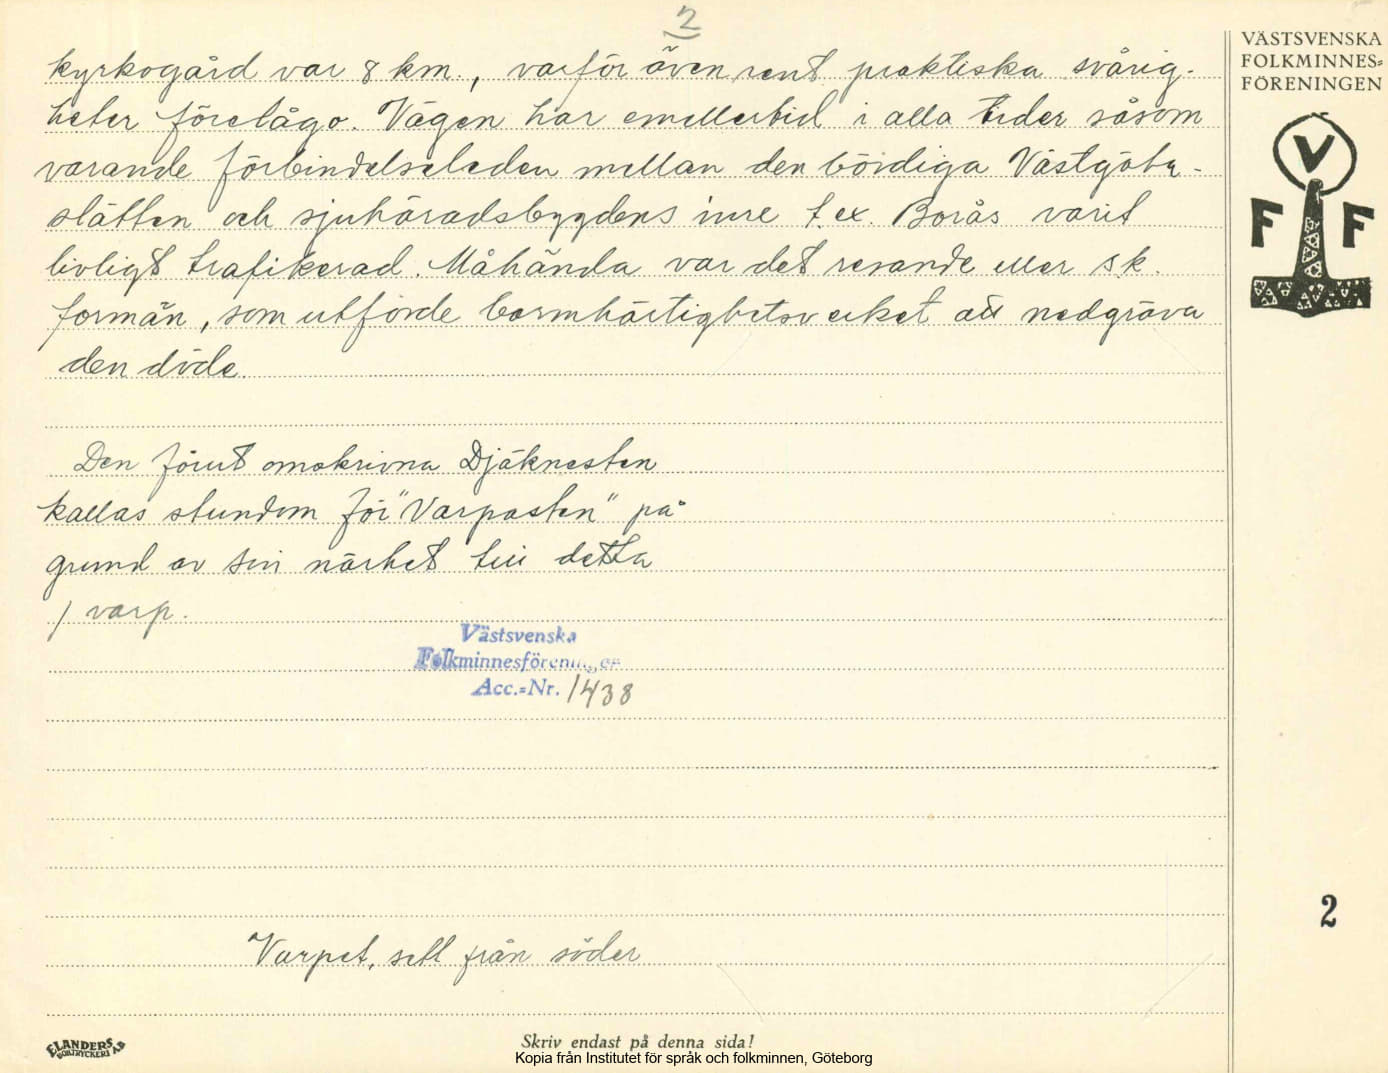 2
kyrkogård var 8 km., varför även rent praktiska svårig-
heter förelågo. Vägen har emellertid i alla tider såsom
varande förbindelseleden mellan den bördiga Västgöta-
slätten och sjuhäradsbygdens inre t.ex. Borås varit
livligt trafikerad. Måhända var det resande eller s.k.
formän, som utförde barmhärtighetsverket att nedgräva
den döde.
Den förut omskrivna Djäknesten
kallas stundom för "Varpasten" på
grund av sin närhet till detta
/ varp.
Västsvenska
Folkminnesföreningen
Acc.=Nr. 1438
Varpet, sett från söder
VÄSTSVENSKA
FOLKMINNES=
FÖRENINGEN
V
F F
2
ELANDERS
BOKTRYCKERI AB
Skriv endast på denna sida!
Kopia från Institutet för språk och folkminnen, Göteborg